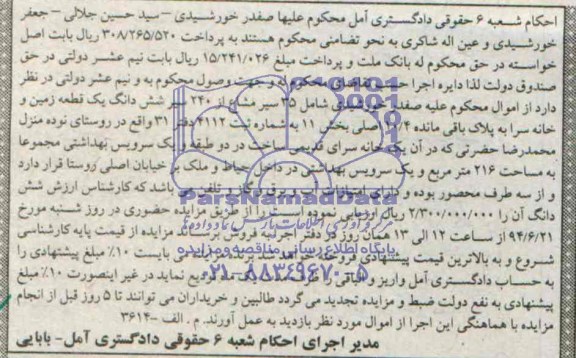 احکام شعبه ۶ حقوقی دادگستری آمل محکوم علیها صفدر خورشیدی – سید حسین جلالی – جعفر
خورشیدی و عین اله شاکری به نحو تضامنی محکوم هستند به پرداخت ۳۰۸/۲۶۵/۵۲۰ ریال بابت اصل
خواسته در حق محکوم له بانک ملت و پرداخت مبلغ ۱۵/۲۴۱/۰۲۶ ریال بابت نیم عشر دولتی در حق
صندوق دولت لذا دایره اجرا حسب تقاضای محکوم له و جهت وصول محکوم به و نیم عشر دولتی در نظر
دارد از اموال محکوم علیه صفدر خورشیدی شامل ۳۵ سیر مشاع از ۲۴۰ سیر شش دانگ یک قطعه زمین و
خانه سرا به پلاک باقی مانده ۱۰/۴ اصلی بخش ۱۱ به شماره ثبت ۴۱۱۲ دفتر ۳۱ واقع در روستای نوده منزل
محمدرضا حضرتی که در آن یک خانه سرای قدیمی ساخت در دو طبقه و یک سرویس بهداشتی مجموعا
به مساحت ۲۱۶ متر مربع و یک سرویس بهداشتی در داخل حیاط و ملک بر خیابان اصلی روستا قرار دارد
و از سه طرف محصور بوده و دارای امتیازات آب و برق و گاز و تلفن می باشد که کارشناس ارزش شش
دانگ آن را ۲/۳۰۰/۰۰۰/۰۰۰ ریال ارزیابی نموده است را از طریق مزایده حضوری در روز شنبه مورخ
۹۴/۶/۲۱ از ساعت ۱۲ الی ۱۳ همان روز در دفتر اجرا به فروش برساند مزایده از قیمت پایه کارشناسی
شروع و به بالاترین قیمت پیشنهادی فروخته خواهد شد برنده مزایده می بایست ۱۰٪ مبلغ پیشنهادی را
به حساب دادگستری آمل واریز و الباقی را ظرف تودیع نماید در غیر اینصورت ۱۰٪ مبلغ
پیشنهادی به نفع دولت ضبط و مزایده تجدید می گردد طالبین و خریداران می توانند تا ۵ روز قبل از انجام
مزایده با هماهنگی این اجرا از اموال مورد نظر بازدید به عمل آورند. م . الف –۳۶۱۴
مدیر اجرای احکام شعبه ۶ حقوقی دادگستری آمل- بابایی
ParsNamadData
پایگاه اطلاع رسانی مناقصه و مزایده
۰۲۱-۸۸۳۴۹۶۷۰-۵